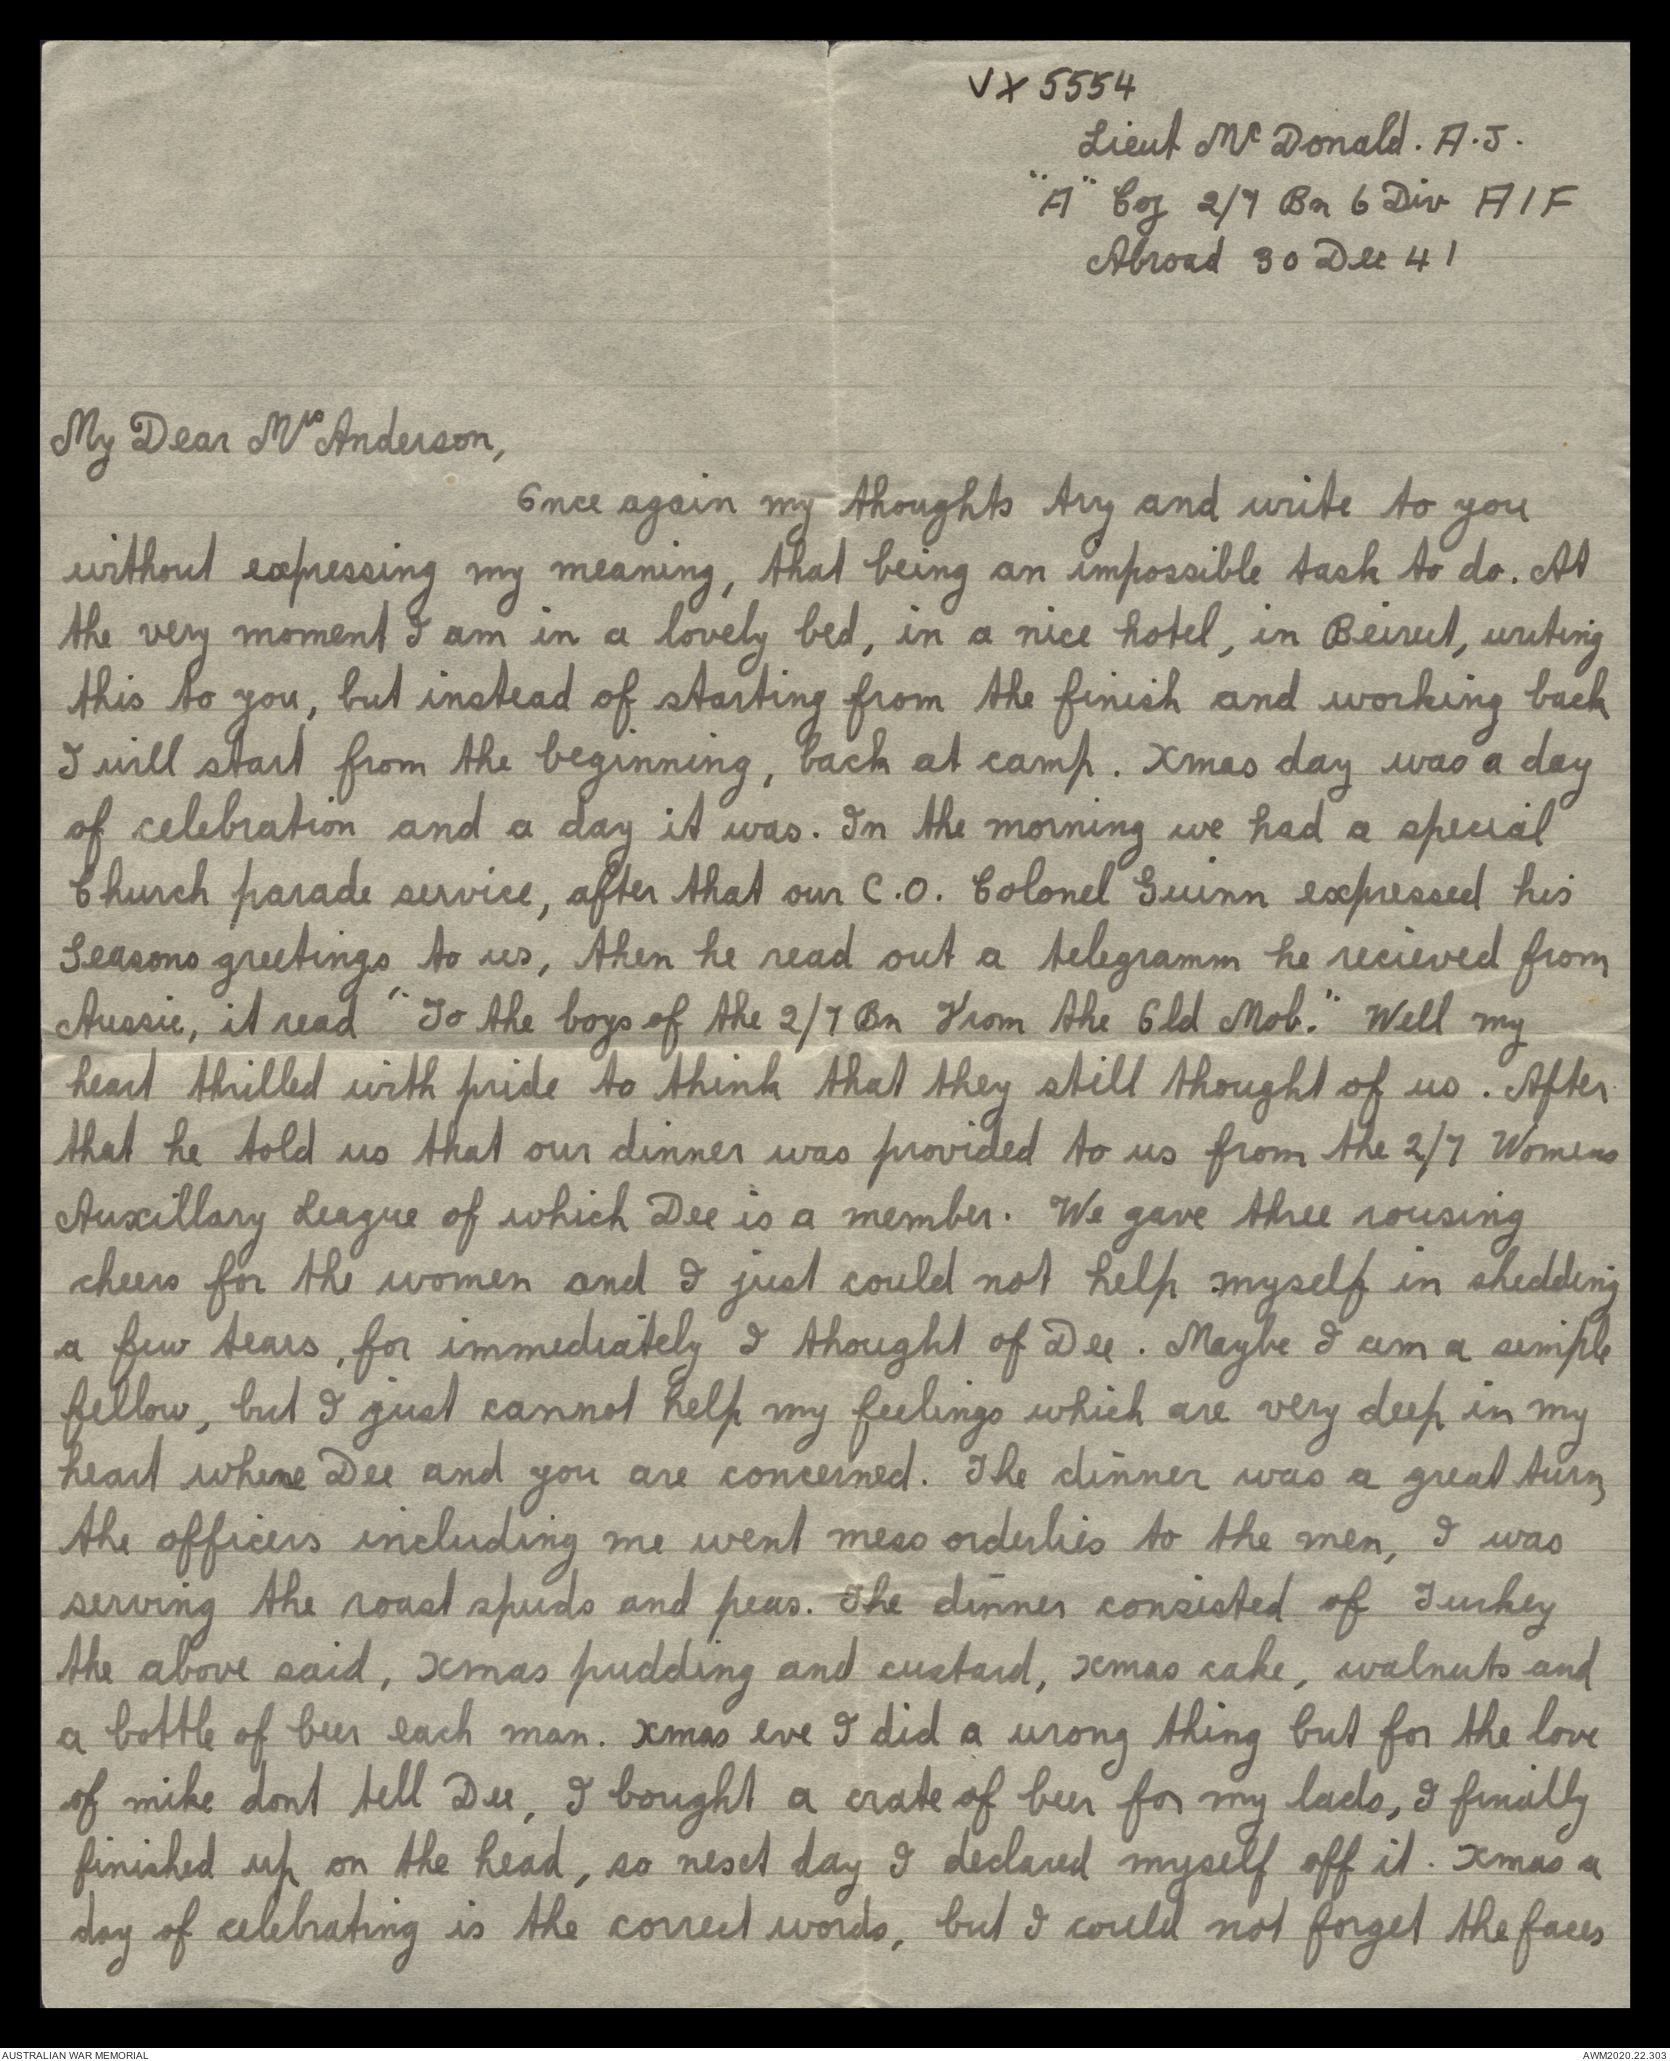 VX 5554
Lieut McDonald. A.J.
"A" Coy 2/7 Bn 6 Div AIF
Abroad 30 Dec 41
My Dear Mrs Anderson,
Once again my thoughts try and write to you
without expressing my meaning, that being an impossible task to do. At
the very moment I am in a lovely bed, in a nice hotel, in Beirut, writing
this to you, but instead of starting from the finish and working back
I will start from the beginning, back at camp. Xmas day was a day
of celebration and a day it was. In the morning we had a special
Church parade service, after that our C.O. Colonel Guinn expressed his
Seasons greetings, to us, then he read out a telegramm he recieved from
Aussie, it read "To the boys of the 2/7 Bn From the Old Mob." Well my
heart thrilled with pride to think that they still thought of us. After
that he told us that our dinner was provided to us from the 2/7 Womens
Auxillary League of which Dee is a member. We gave three rousing
cheers for the women and I just could not help myself in shedding
a few tears, for immediately I thought of Dee. Maybe I am a simple
fellow, but I just cannot help my feelings which are very deep in my
heart where Dee and you are concerned. The dinner was a great turn,
the officers including me went mess orderlies to the men, I was
serving the roast spuds and peas. The dinner consisted of Turkey
the above said, Xmas pudding and custard, Xmas cake, walnuts and
a bottle of beer each man. Xmas eve I did a wrong thing but for the love
of mike dont tell Dee, I bought a crate of beer for my lads, I finally
finished up on the head, so next day I declared myself off it. Xmas a
day of celebrating is the correct words, but I could not forget the faces
AUSTRALIAN WAR MEMORIAL
AWM2020.22.303